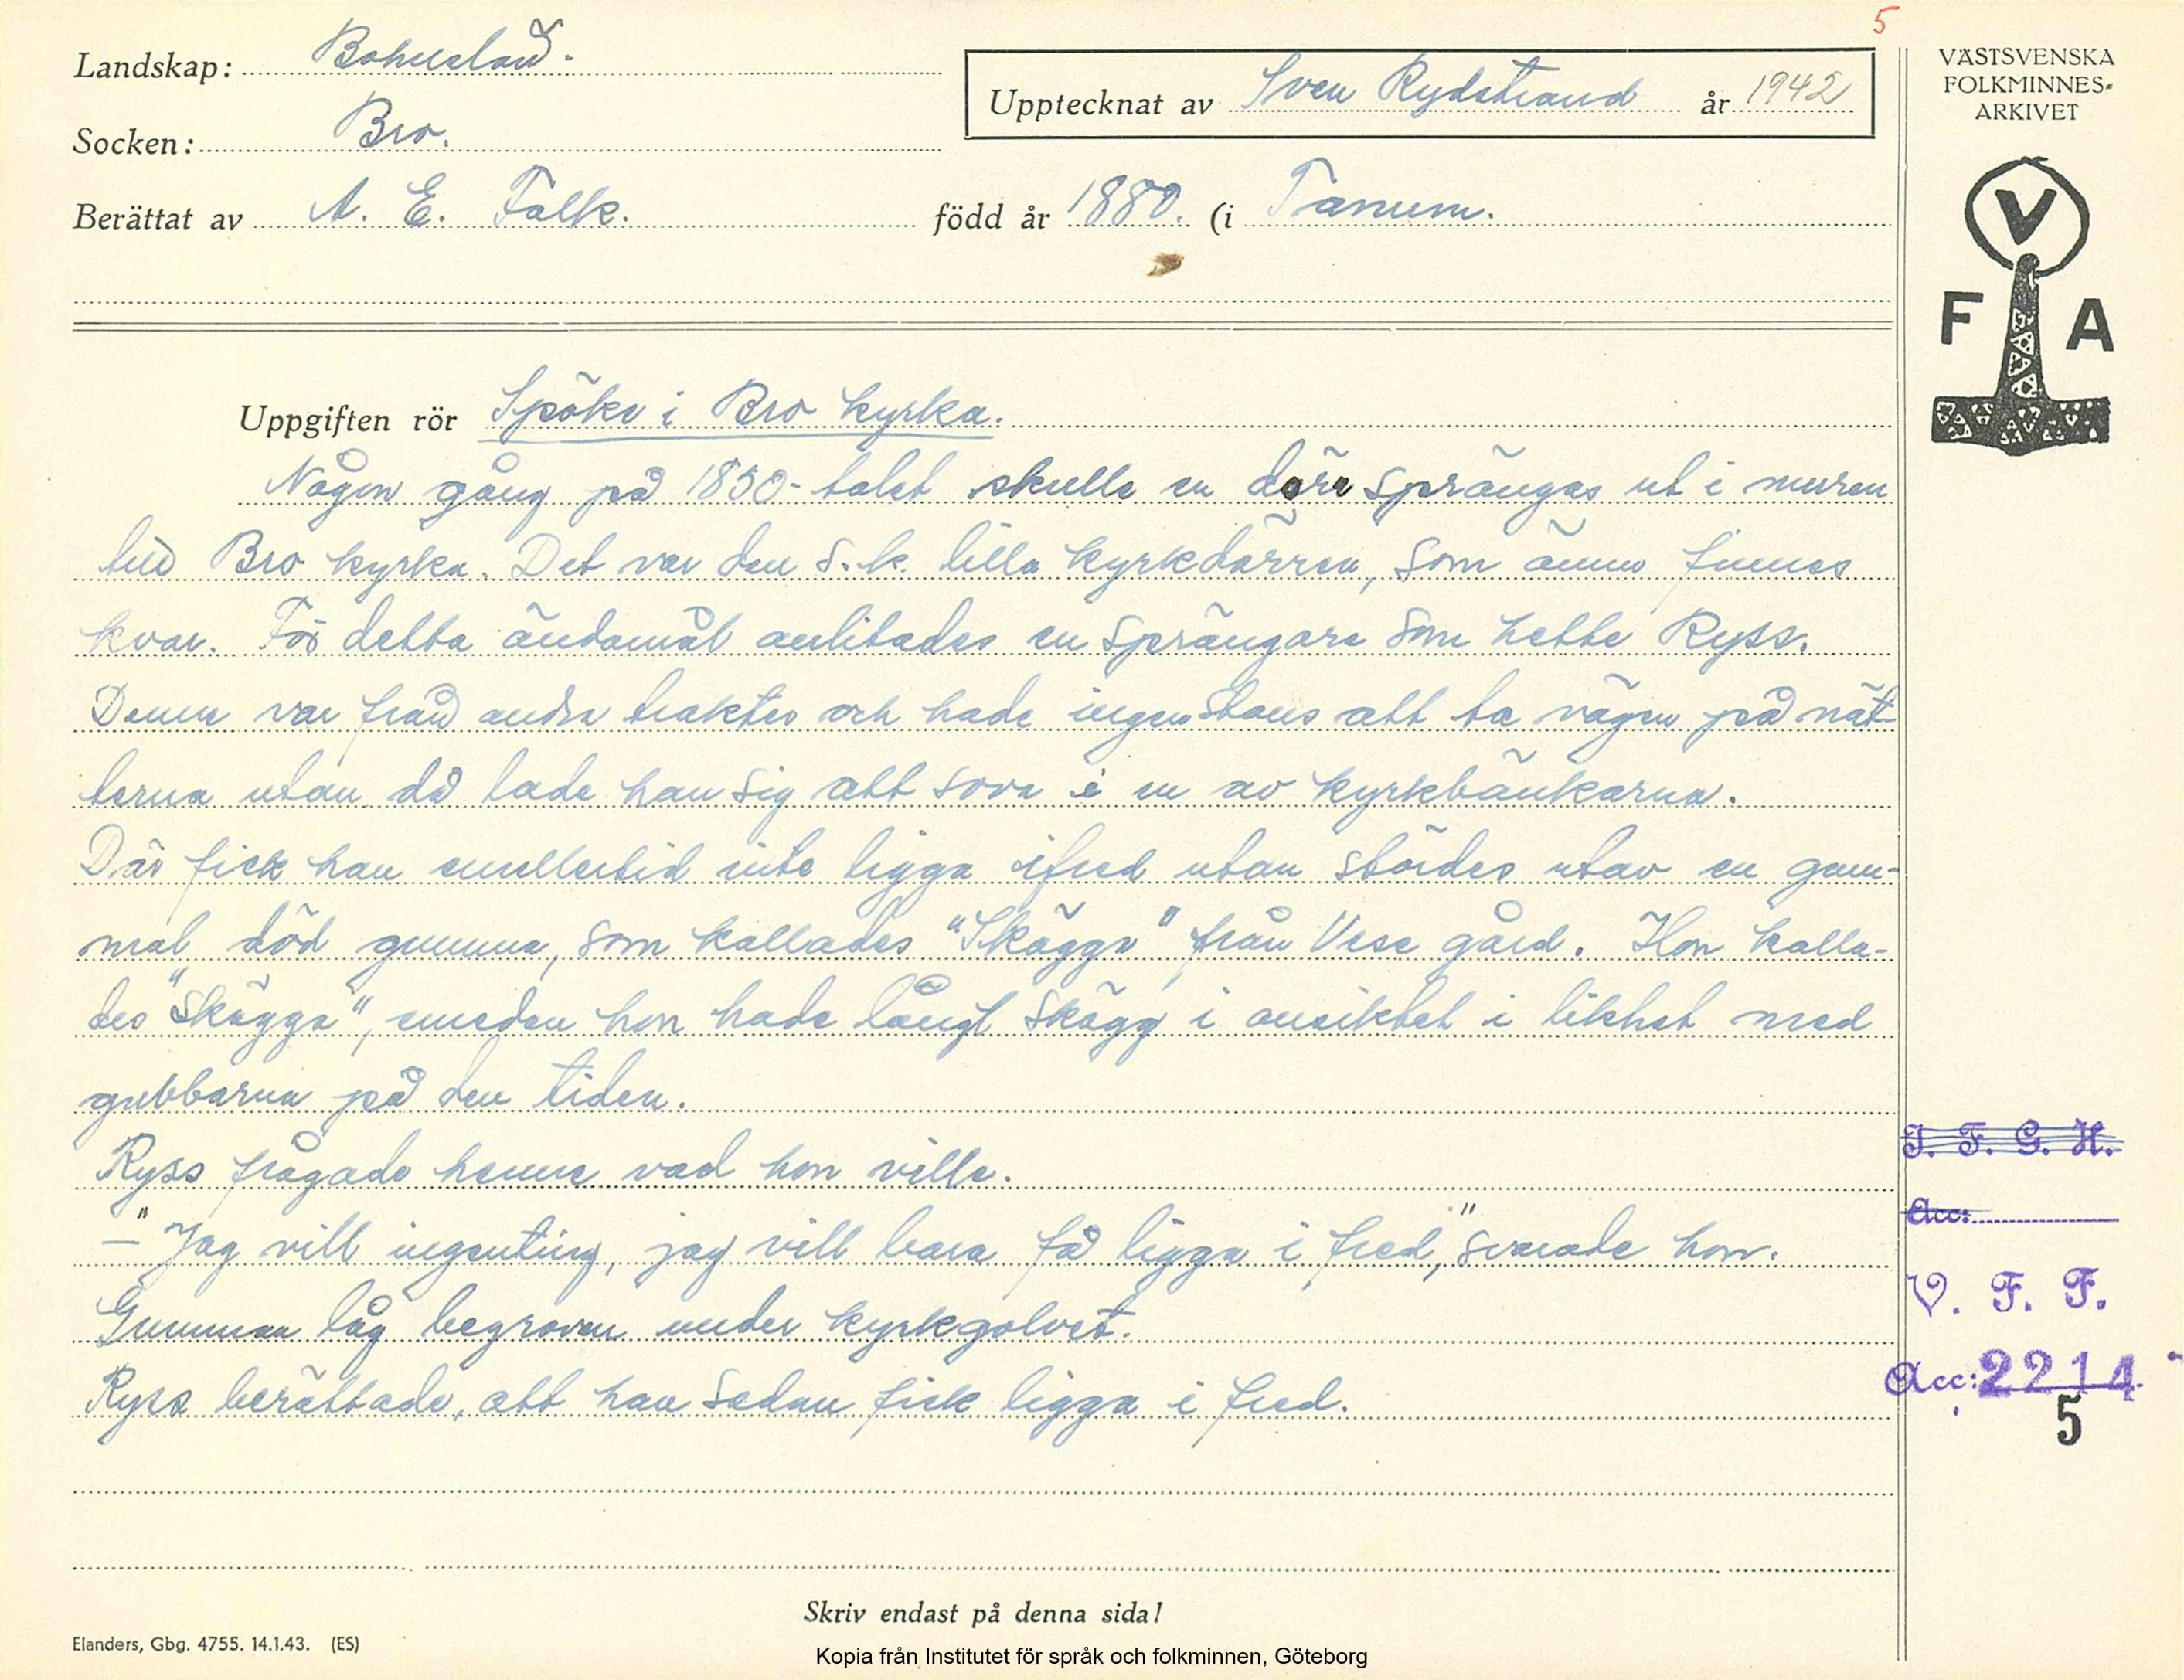 5
Landskap: Bohuslän.
Upptecknat av Sven Rydstrand år 1942
VÄSTSVENSKA
FOLKMINNES-
ARKIVET
Socken: Bro.
Berättat av A. E. Falk. född år 1880. (i Tanum.
V
F A
Uppgiften rör Spöke i Bro kyrka.
Någon gång på 1850-talet skulle en dörr sprängas ut i muren
till Bro kyrka. Det var den s.k. lilla kyrkdörren, som ännu finnes
kvar. För detta ändamål anlitades en sprängare som hette Ryss.
Denne var från andra trakter och hade ingenstans att ta vägen på nät-
terna utan då lade han sig att sova i en av kyrkbänkarna.
Där fick han emellertid inte ligga ifred utan stördes utav en gam-
mal död gumma, som kallades "Skägga" från Vese gård. Hon kalla-
des "Skägga", emedan hon hade långt skägg i ansiktet i likhet med
gubbarna på den tiden.
Ryss frågade henne vad hon ville.
– "Jag vill ingenting, jag vill bara få ligga i fred," svarade hon.
Gumman låg begraven under kyrkgolvet.
Ryss berättade, att han sedan fick ligga i fred.
I. F. G. H.
Acc:
V. F. F.
Acc: 2214
5
Skriv endast på denna sida!
Elanders, Gbg. 4755. 14.1.43. (ES)
Kopia från Institutet för språk och folkminnen, Göteborg